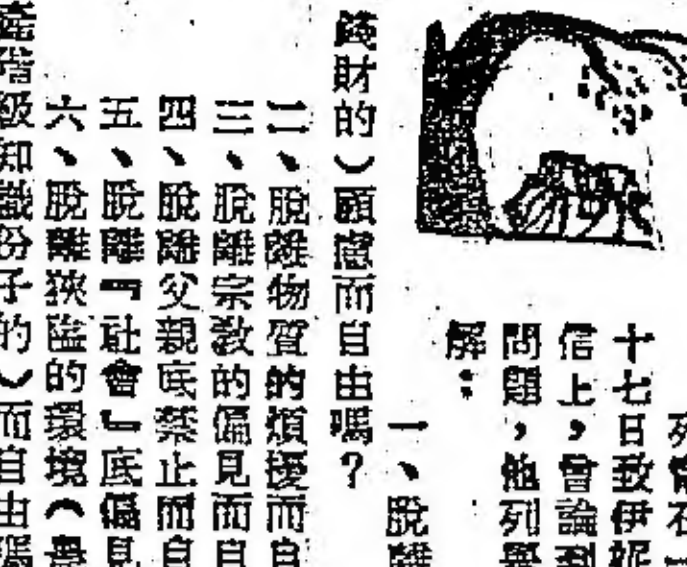 列寧在一
十七日致伊妮
信上,曾論到
問題,他列舉
解:
一、脫離
錢財的)顧慮而自由嗎?
二、脫離物質的煩擾而自
三、脫離宗敎的偏見而自
四、脫離父親底禁止而自
五、脫離『社會』底偏見
六、脫離狹隘的環境(
產階級知識份子的)而自由嗎